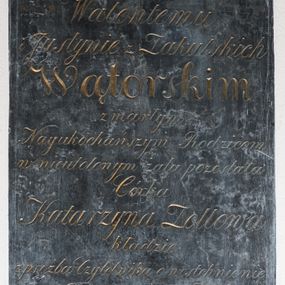 Walentemu
Justynie z Zakulskich
Wątorskim
zmarłym
Nayukochanszym Rodzicom
w nieutulonym żalu pozostała
Córka
Katarzyna Zollowa
kładzie
z prozbą Czytelnika o westchnienie